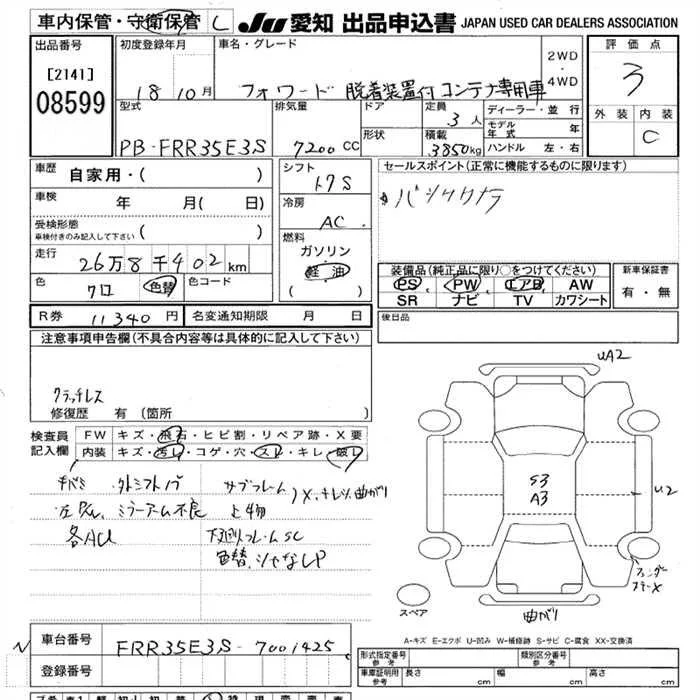 車内保管・守衛保管 し JU 愛知 出品申込書 JAPAN USED CAR DEALERS ASSOCIATION
出品番号
[2141]
08599
初度登録年月
18 10月
車名・グレード
フォワード 脱着装置付コンテナ専用車
2WD
・
4WD
評価点
3
外装 内装
C
型式
PB-FRR35E3S
排気量
7200CC
ドア
形状
定員
3人
積載
3850kg
ディーラー・並行
モデル年式 年
ハンドル 左・右
車歴
自家用・( )
車検
年 月( 日)
受検形態
車検付きのみ記入して下さい ( )
走行
26万8千402km
色
クロ 色替 色コード
シフト
F7S
冷房
AC
燃料
ガソリン
軽油
( ・ )
セールスポイント(正常に機能するものに限ります)
装備品(純正品に限り○をつけてください)
PS PW エアB AW
SR ナビ TV カワシート
新車保証書
有・無
R券 11340円 名変通知期限 月 日
後日品
注意事項申告欄(不具合内容等は具体的に記入して下さい)
クラッチレス
修復歴 有(箇所 )
検査員記入欄
FW キズ・飛石・ヒビ割・リペア跡・X要
内装 キズ・汚レ・コゲ・穴・スレ・キレ・破レ
サブフレーム
ミラーアム不良 上物
各AU 下廻りフレームSC
色替、シャなしP
UA2
S3
A3
U2
曲がり
スペア
A-キズ E-エクボ U-凹み W-補修跡 S-サビ C-腐食 XX-交換済
車台番号 FRR35E3S-7001425
登録番号
形式指定番号
参考
類別区分番号
参考
車庫証明用
参考
長さ cm 幅 cm 高さ cm